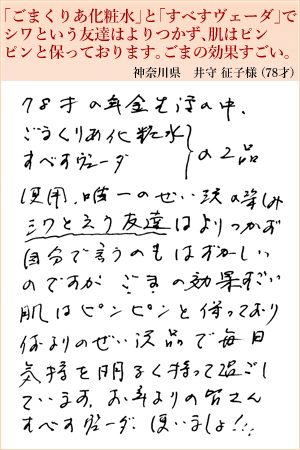 「ごまくりあ化粧水」と「すべすヴェーダ」で
シワという友達はよりつかず、肌はピン
ピンと保っております。ごまの効果すごい。
神奈川県　井守 征子様（78才）
78才の年金生活の中、
ごまくりあ化粧水
すべすヴェーダ
の2品
使用、唯一のぜい沢の楽しみ
シワと云う友達はよりつかず
自分で言うのもはずかしい
のですが ごまの効果すごい
肌はピンピンと保っており
何よりのぜい沢品で毎日
気持を明るく持って過ごし
ています。お年よりの皆さん
すべすヴェーダ、使いましょ!!!